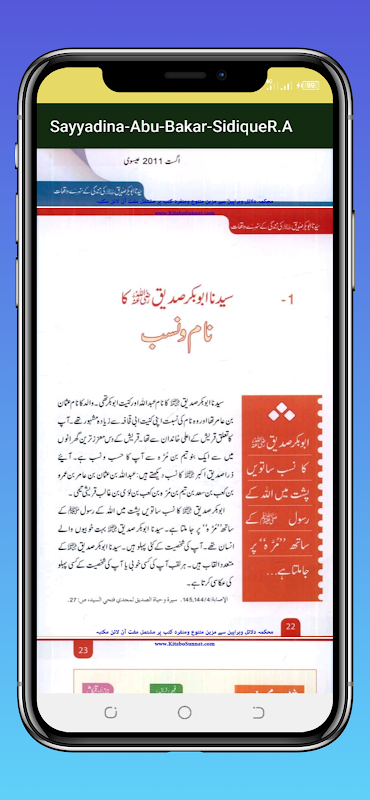 Sayyadina-Abu-Bakar-SidiqueR.A
اگست 2011 عیسوی
سیدنا ابوبکر صدیق کی زندگی کے سنہرے واقعات
محکمہ دلائل وبراہین سے مزین متنوع ومنفرد کتب پر مشتمل مفت آن لائن مکتبہ
www.KitaboSunnat.com
سیدنا ابوبکر صدیق کی زندگی کے سنہرے واقعات
1- سیدنا ابوبکر صدیق رضی اللہ عنہ کا
نام و نسب
سیدنا ابوبکر صدیق رضی اللہ عنہ کا نام عبداللہ اور کنیت ابوبکر تھی۔ والد کا نام عثمان
بن عامر تھا اور وہ نام کی نسبت اپنی کنیت ابی قحافہ سے زیادہ مشہور تھے۔ آپ
کا تعلق قریش کے اعلیٰ خاندان سے تھا۔ قریش کے دس معزز ترین گھرانوں
میں سے ایک بنو تیم بن مُرّہ سے آپ کا حسب و نسب ہے۔ آیئے
ذرا صدیق اکبر رضی اللہ عنہ کا نسب دیکھتے ہیں: عبداللہ بن عثمان بن عامر بن عمرو
بن کعب بن سعد بن تیم بن مُرّہ بن کعب بن لؤی بن غالب قریشی تیمی۔
آپ کا نسب ساتویں پشت میں اللہ کے رسول ﷺ کے
ساتھ ”مُرّہ“ پر جا ملتا ہے۔ سیدنا ابوبکر صدیق رضی اللہ عنہ بہت خوبیوں والے
انسان تھے۔ آپ کی شخصیت کے کئی پہلو ہیں۔ سیدنا ابوبکر صدیق رضی اللہ عنہ کے
متعدد القاب ہیں۔ ہر لقب آپ کی کسی خوبی یا آپ کی شخصیت کے کسی پہلو
کی عکاسی کرتا ہے۔
ابوبکر صدیق رضی اللہ عنہ
کا نسب ساتویں
پشت میں اللہ کے
رسول ﷺ کے
ساتھ ”مُرّہ“ پر
جا ملتا ہے...
الإصابة: 145,144/4، سيرة وحياة الصديق لمجدي فتحي السيد، ص: 27.
22
محکمہ دلائل وبراہین سے مزین متنوع ومنفرد کتب پر مشتمل مفت آن لائن مکتبہ
www.KitaboSunnat.com
23